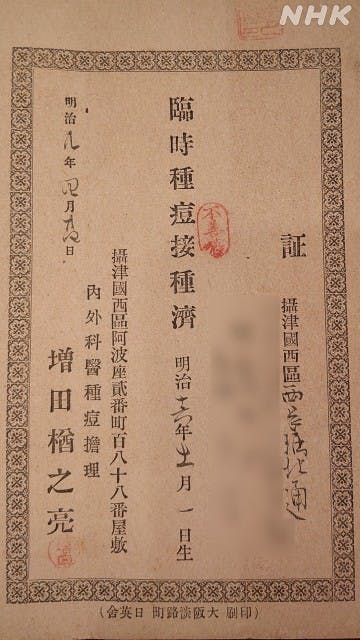 NHK
証
攝津國西區西長堀北通
不善感
臨時種痘接種濟
明治十六年十一月一日生
攝津國西區阿波座貳番町百八十八番屋敷
内外科醫種痘擔理
増田楢之亮
明治 年四月 日
(印刷 大阪淡路町 日英舍)